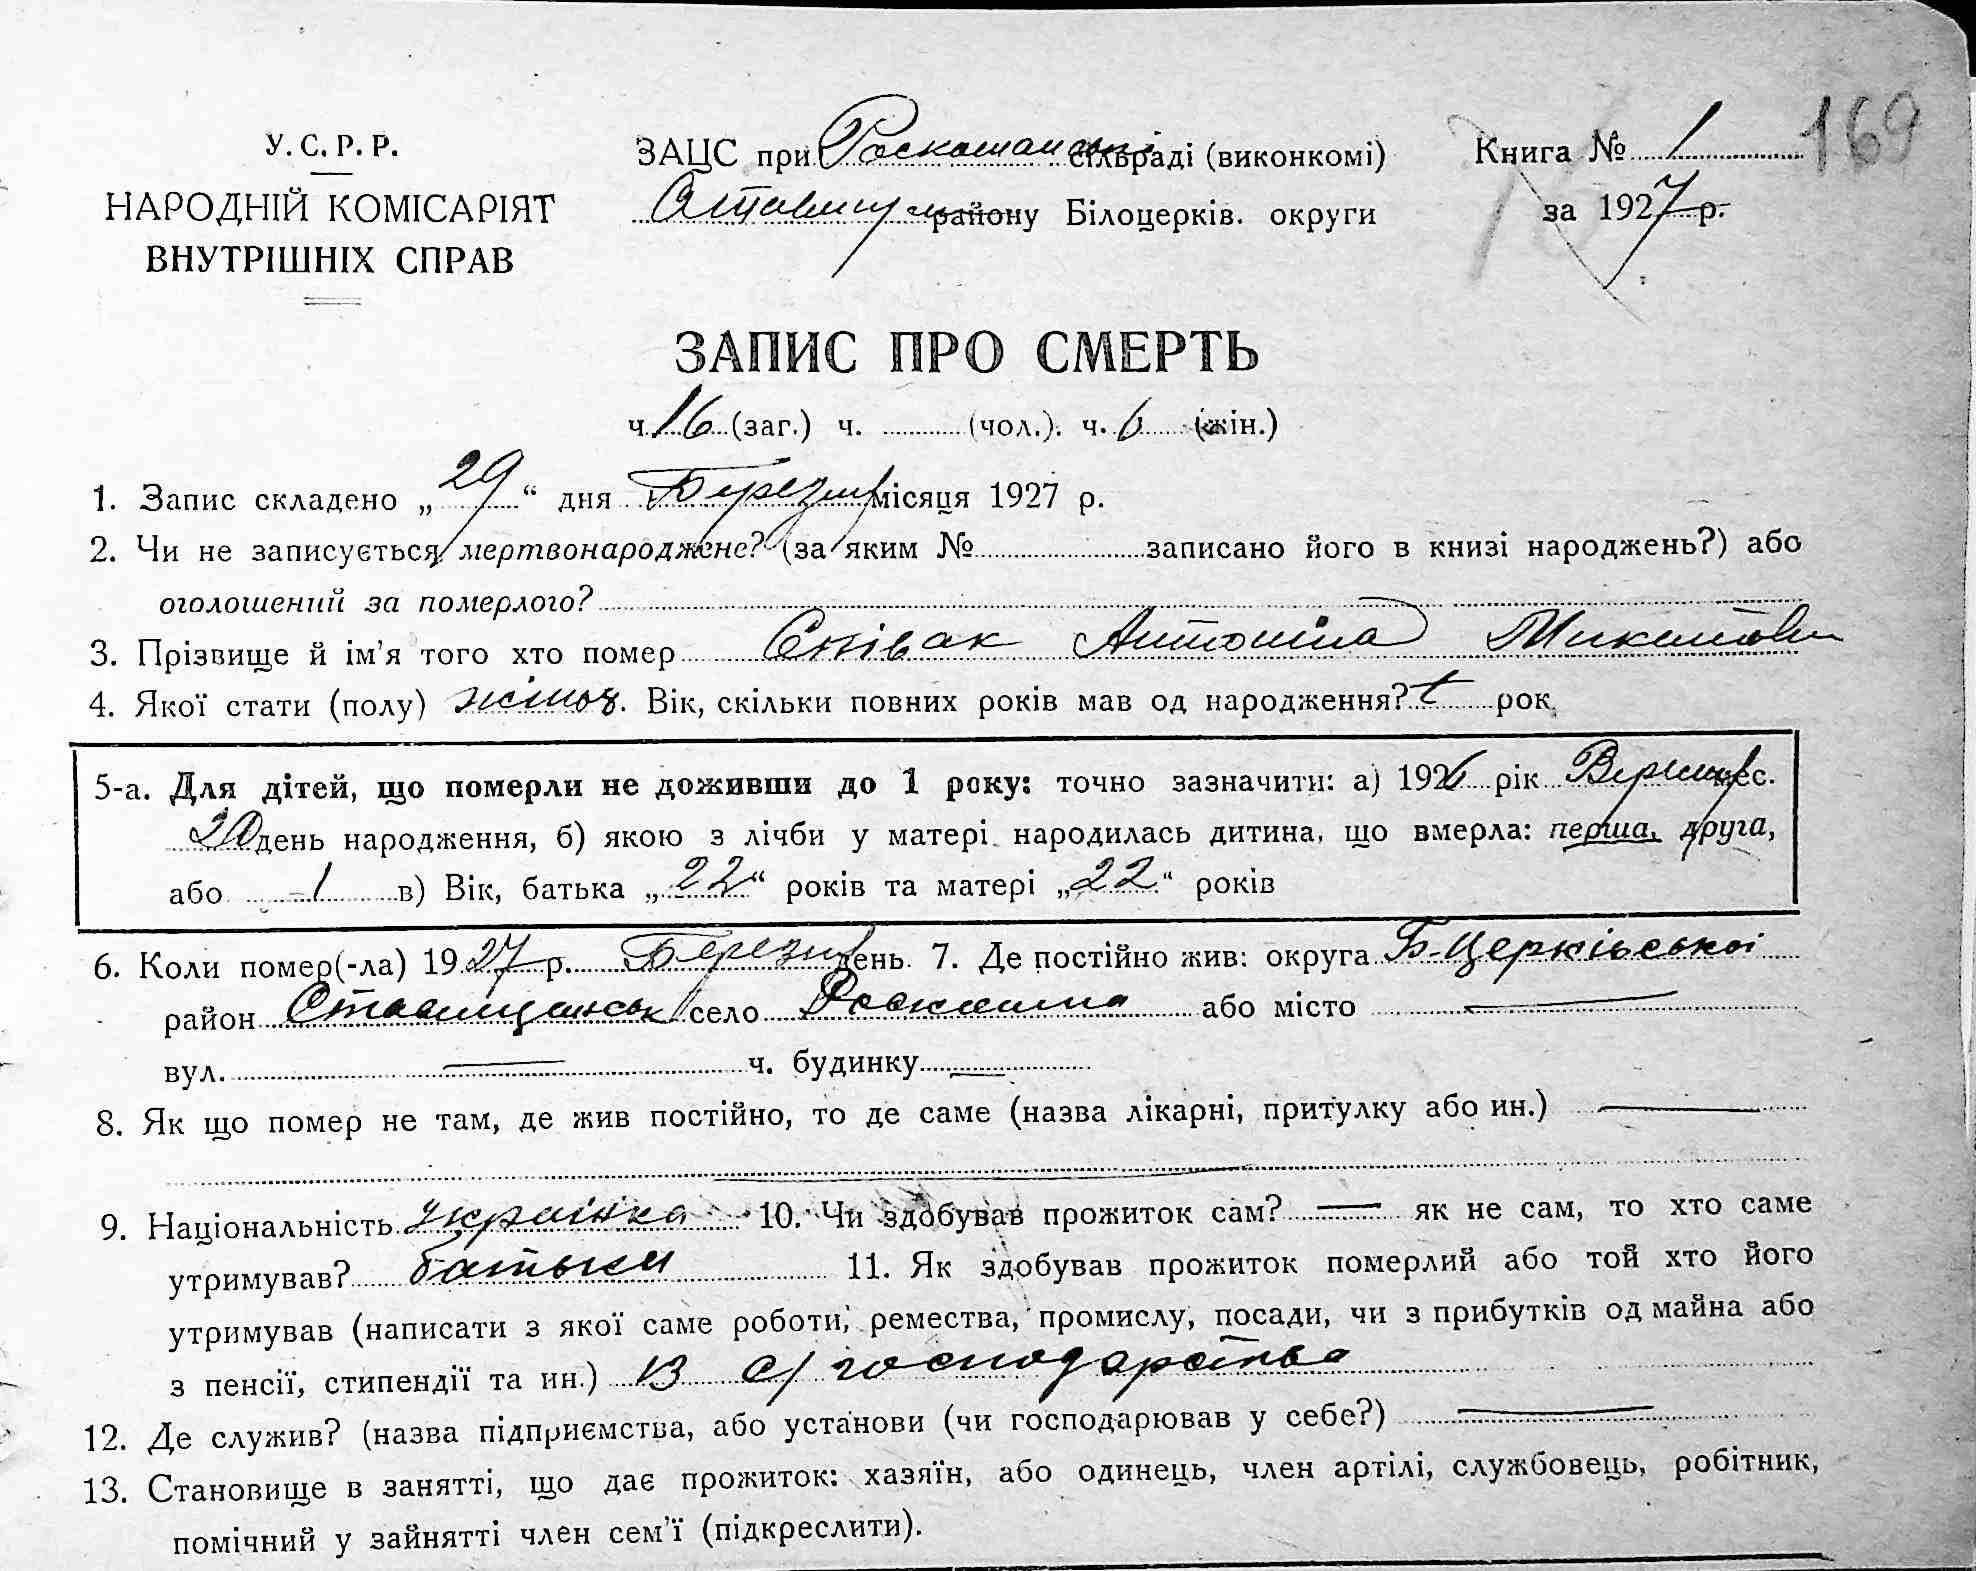 169
У. С. Р. Р.
НАРОДНІЙ КОМІСАРІЯТ
ВНУТРІШНІХ СПРАВ
ЗАЦС при Роскошанські сільраді (виконкомі)
району Білоцерків. округи
Книга № 1
за 1927 р.
ЗАПИС ПРО СМЕРТЬ
ч. 16 (заг.) ч. (чол.). ч. 6 (жін.)
1. Запис складено „29“ дня Березня місяця 1927 р.
2. Чи не записується мертвонароджене? (за яким № записано його в книзі народжень?) або
оголошений за померлого?
3. Прізвище й ім'я того хто помер Співак Антоніна
4. Якої стати (полу) жіноч. Вік, скільки повних років мав од народження? рок.
5-а. Для дітей, що померли не доживши до 1 року: точно зазначити: а) 1926 рік мес.
20 день народження, б) якою з лічби у матері народилась дитина, що вмерла: перша, друга,
або -1 в) Вік, батька „22“ років та матері „22“ років
6. Коли помер(-ла) 1927 р. Березня день. 7. Де постійно жив: округа Б-Церківської
район Ставищанськ село Роскошна або місто —
вул. — ч. будинку —
8. Як що помер не там, де жив постійно, то де саме (назва лікарні, притулку або ин.) —
9. Національність українка 10. Чи здобував прожиток сам? — як не сам, то хто саме
утримував? батьки 11. Як здобував прожиток померлий або той хто його
утримував (написати з якої саме роботи, ремества, промислу, посади, чи з прибутків од майна або
з пенсії, стипендії та ин.) із с/господарства
12. Де служив? (назва підприємства, або установи (чи господарював у себе?) —
13. Становище в занятті, що дає прожиток: хазяїн, або одинець, член артілі, службовець, робітник,
помічний у зайнятті член сем'ї (підкреслити).